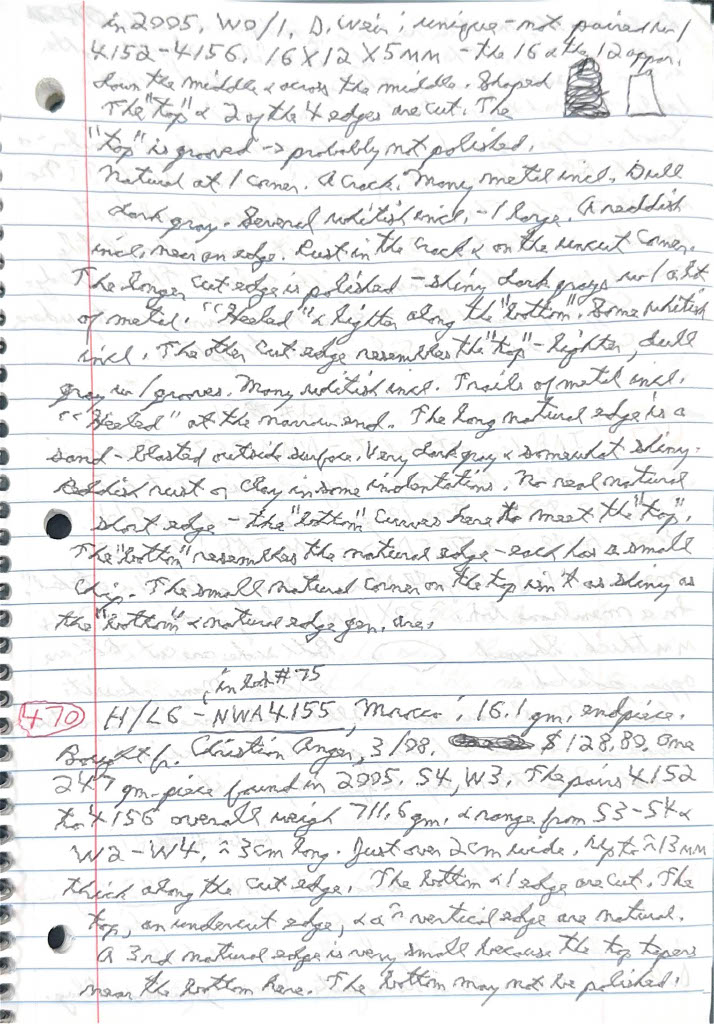 in 2005. W0/1, D. Weir; unique - not paired w/
4152-4156. 16X12X5MM - the 16 & the 12 appar.
down the middle & across the middle. Shaped
The "top" & 2 of the 4 edges are cut. The
"top" is grooved -> probably not polished.
Natural at 1 corner. A crack. Many metal incl. Dull
dark gray. Several whitish incl. - 1 large. A reddish
incl. near an edge. Rust in the crack & on the uncut corner.
The longer cut edge is polished - shiny dark grays w/ a bit
of metal. "Heeled" & lighter along the "bottom". Some whitish
incl. The other cut edge resembles the "top" - lighter, dull
gray w/ grooves. Many whitish incl. Trails of metal incl.
"Heeled" at the narrow end. The long natural edge is a
sand-blasted outside surface. Very dark gray & somewhat shiny.
Reddish rust or clay in some indentations. No real natural
short edge - the "bottom" curves here to meet the "top".
The "bottom" resembles the natural edge - each has a small
chip. The small natural corner on the top isn't as shiny as
the "bottom" & natural edge gen. are.
in lot #75
470 H/L6 - NWA 4155, Morocco; 16.1 gm. endpiece.
Bought fr. Christian Anger, 3/08. $128.80. One
247 gm. piece found in 2005. S4, W3. The pairs 4152
to 4156 overall weigh 711.6 gm. & range from S3-S4 &
W2-W4. ~3cm long. Just over 2cm wide. Up to ~13MM
thick along the cut edge. The bottom & 1 edge are cut. The
top, an undercut edge, & a ~ vertical edge are natural.
A 3rd natural edge is very small because the top tapers
near the bottom here. The bottom may not be polished.